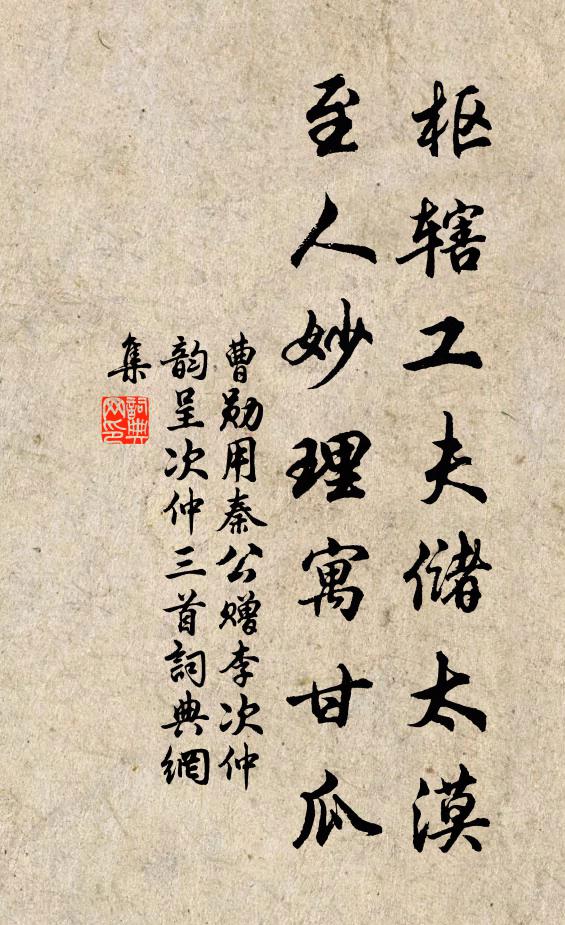 枢辖工夫储太漠
至人妙理寓甘瓜
曹勋用秦公赠李次仲
韵呈次仲三首詞典網
集
詞典网印